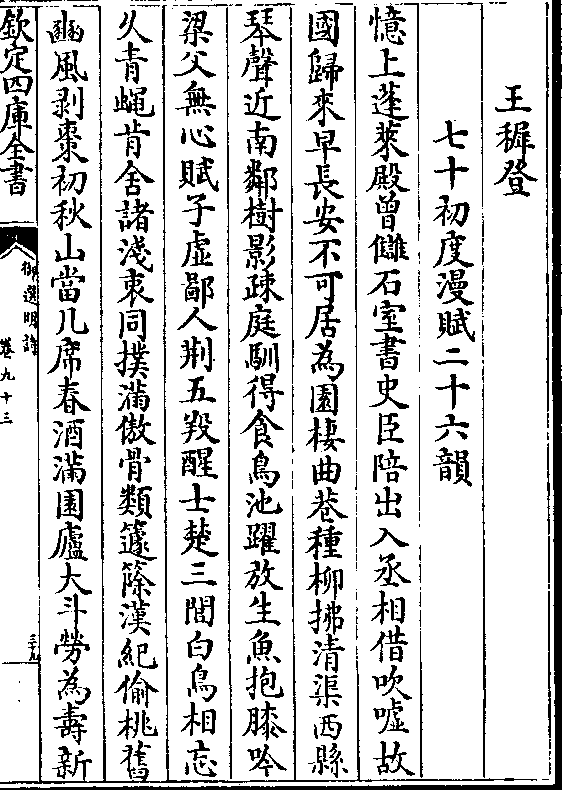 王穉登
七十初度漫賦二十六韻
憶上蓬萊殿曾讎石室書史臣陪出入丞相借吹噓故
國歸來早長安不可居為園棲曲巷種柳拂清渠西縣
琴聲近南鄰樹影疎庭馴得食鳥池躍放生魚抱膝吟
梁父無心賦子虛鄙人荆五羖醒士楚三閭白鳥相忘
久青蠅肯舍諸淺衷同撲滿傲骨類籧篨漢紀偷桃舊
豳風剥棗初秋山當几席春酒滿園廬大斗勞為壽新
欽定四庫全書
御選明詩
卷九十三
三十九